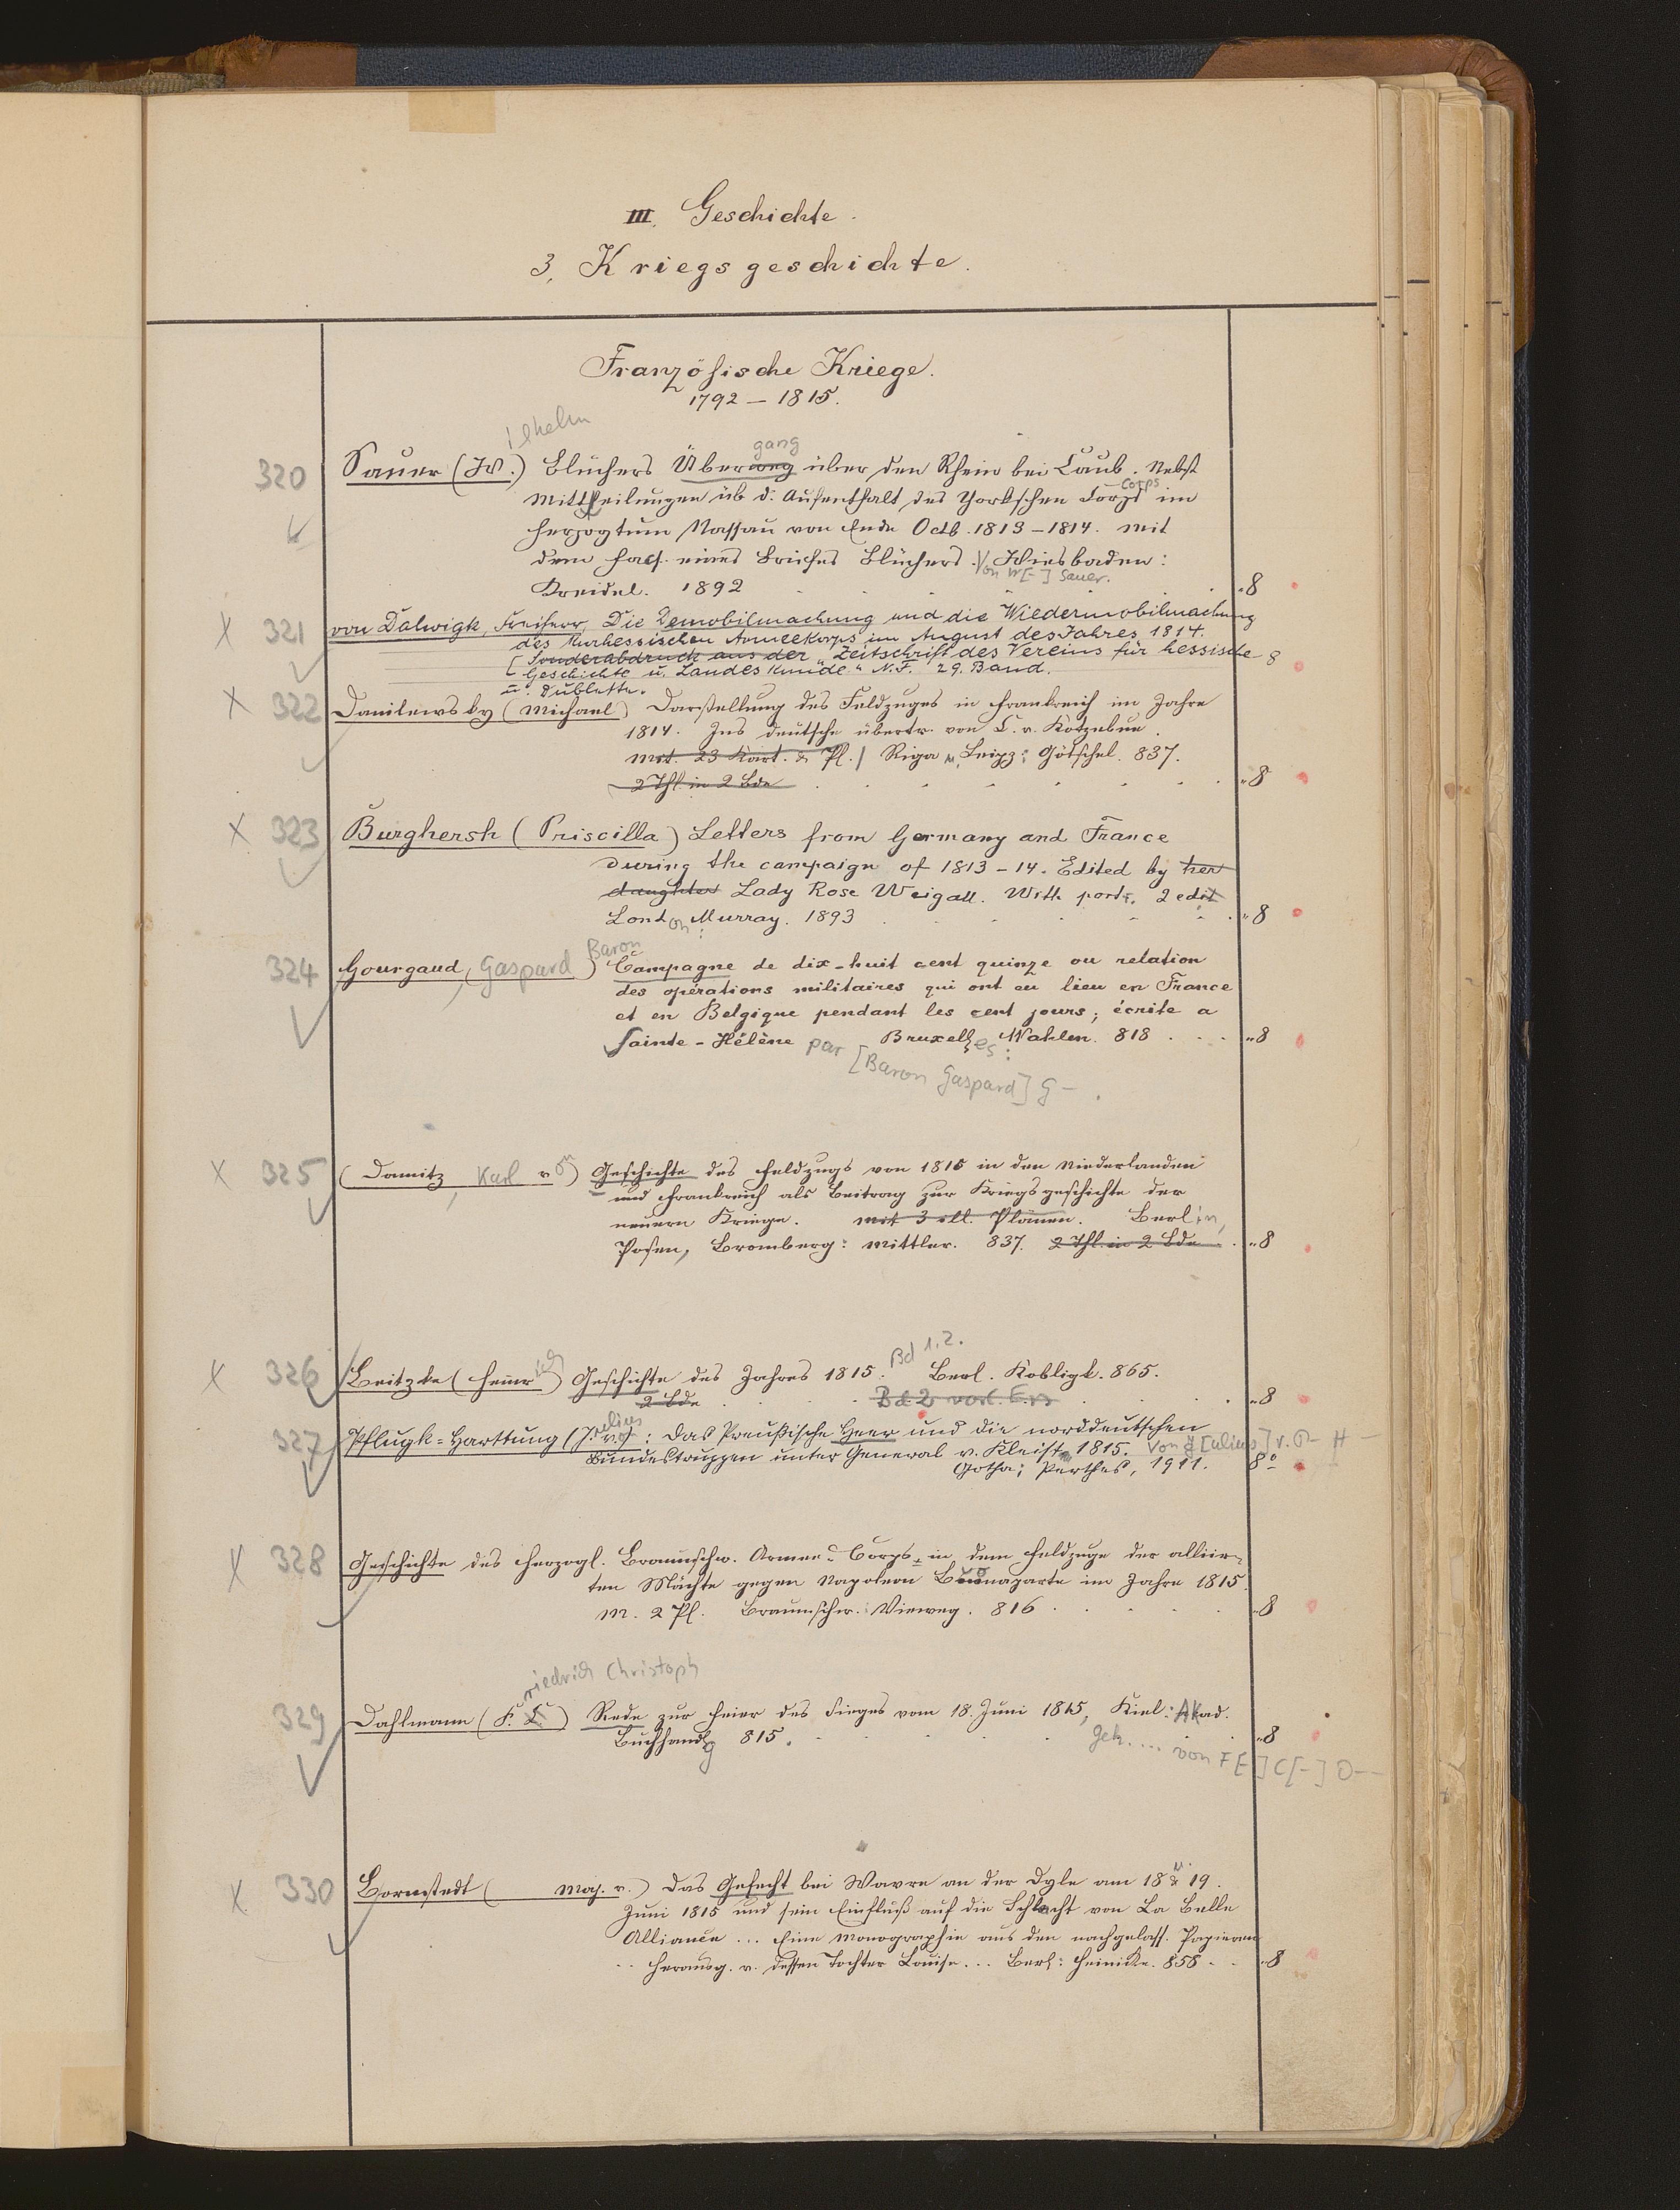 III. Geschichte.
3. Kriegsgeschichte.
Französische Kriege.
1792 – 1815.
ilhelm
gang
320 Sauer (W.) Blüchers Überwug über den Rhein bei Caub. Nebst
Corps
Mittheilungen üb d. Aufenthalt des Yorkschen Corps im
Herzogtum Nassau von Ende Octb. 1813 – 1814. Mit
dem Facs. eines Briefes Blüchers. Wiesbaden:
Von W[-] Sauer.
Kreidel. 1892 "8
X 321 von Dalwigk, Freiherr, Die Demobilmachung und die Wiedermobilmachung
des Kurhessischen Armeekorps im August des Jahres 1814.
[Sonderabdruck aus der „Zeitschrift des Vereins für hessische 8
Geschichte u. Landeskunde" N.F. 29. Band.
u. Dublette.
X 322 Danilewsky (Michael) Darstellung des Feldzuges in Frankreich im Jahre
1814. Ins Deutsche übertr. von C. v. Kotzebue.
Mit. 23 Kart. & Pl. / Riga u. Leipz: Götschel. 837.
2 Thl. in 2 Bde "8
X 323 Burghersh (Priscilla) Letters from Germany and France
during the campaign of 1813 – 14. Edited by her
daughter Lady Rose Weigall. With portr. 2 edit
London: Murray. 1893 "8
Baron
324 Gourgaud, Gaspard) Campagne de dix-huit cent quinze ou relation
des opérations militaires qui ont eu lieu en France
et en Belgique pendant les cent jours; écrite a
Sainte-Hélène par Bruxelles: Wahlen. 818 "8
[Baron Gaspard] G – .
X 325 (Damitz, Karl von) Geschichte des Feldzugs von 1815 in den Niederlanden
und Frankreich als Beitrag zur Kriegsgeschichte der
neuern Kriege. Mit 3 ill. Plänen. Berlin,
Posen, Bromberg: Mittler. 837. 2 Thl. in 2 Bde "8
Bd 1.2.
X 326 Beitzke (Heinrich) Geschichte des Jahres 1815. Berl. Kobligk. 865.
2 Bde "8
ulius
327 Pflugk-Harttung (J. v.): Das Preußische Heer und die norddeutschen
Bundestruppen unter General v. Kleist 1815. Von J[ulius] v. P– H–
Gotha; Perthes, 1911. 8°
X 328 Geschichte des Herzogl. Braunschw. Armee-Corps in dem Feldzuge der alliir-
ten Mächte gegen Napoleon Buonaparte im Jahre 1815.
M. 2 Pl. Braunschw.: Vieweg. 816 "8
riedrich Christoph
329 Dahlmann (F. C.) Rede zur Feier des Sieges vom 18. Juni 1815, Kiel: Akad.
Buchhandlg 815. "8
Geh. ... von F[-] C[-] D–
X 330 Bornstedt ( Maj. v.) Das Gefecht bei Wavre an der Dyle am 18 u. 19.
Juni 1815 und sein Einfluß auf die Schlacht von La Belle
Alliance ... Eine Monographie aus den nachgelass. Papieren
herausg. v. dessen Tochter Louise ... Berl: Heinicke. 858 "8